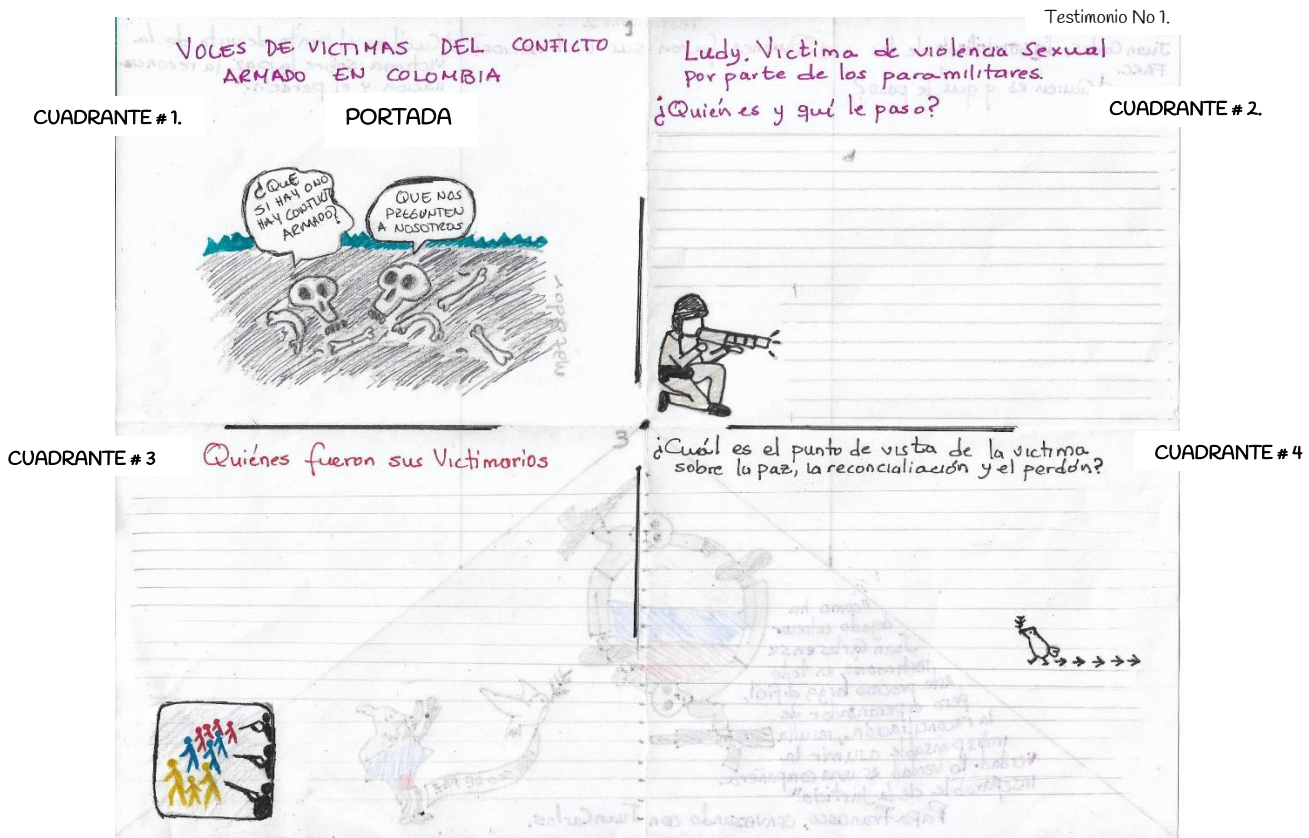 Testimonio No 1.
1
VOCES DE VICTIMAS DEL CONFICTO
ARMADO EN COLOMBIA
CUADRANTE # 1.
PORTADA
¿QUE
SI HAY O NO
HAY CONFLICTO
ARMADO?
QUE NOS
PREGUNTEN
A NOSOTROS
Ludy. Victima de violencia sexual
por parte de los paramilitares.
¿Quién es y qué le paso?
CUADRANTE # 2.
CUADRANTE # 3
Quiénes fueron sus Victimarios
3
¿Cuál es el punto de vista de la victima
sobre la paz, la reconcialiación y el perdón?
CUADRANTE # 4